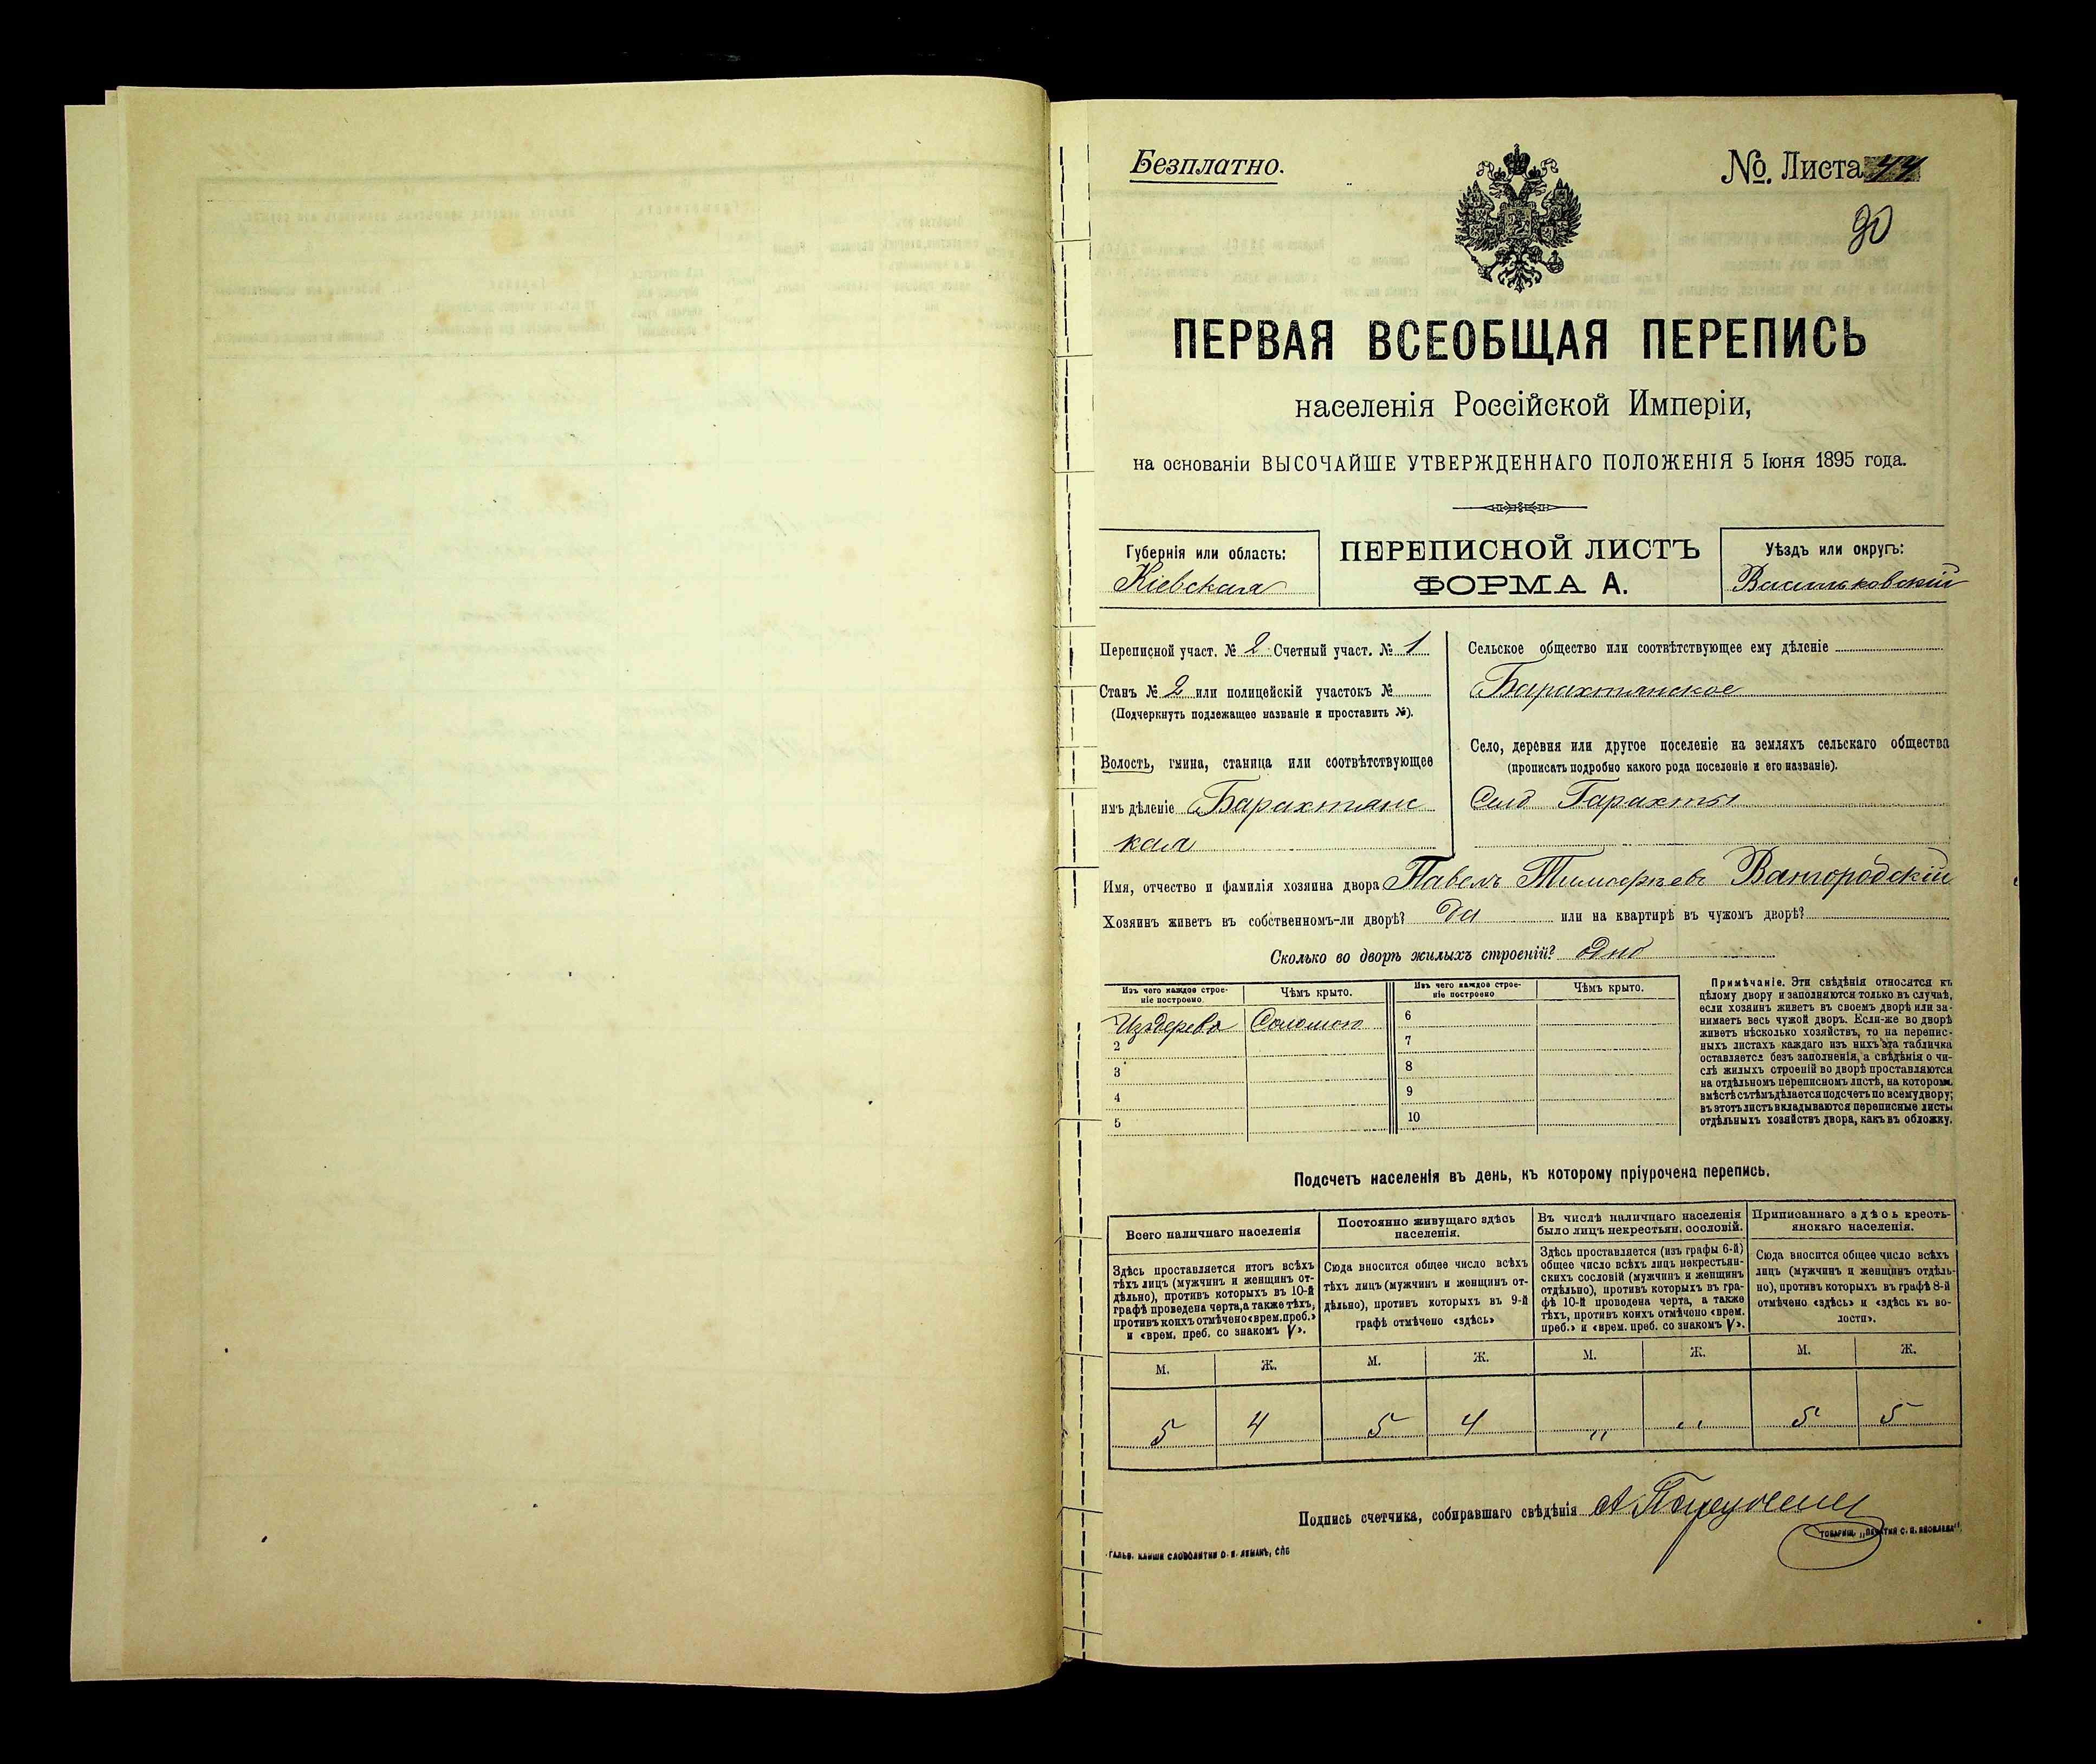 Безплатно.
№ Листа 44
90
ПЕРВАЯ ВСЕОБЩАЯ ПЕРЕПИСЬ
населенія Россійской Имперіи,
на основаніи ВЫСОЧАЙШЕ УТВЕРЖДЕННАГО ПОЛОЖЕНІЯ 5 Іюня 1895 года.
Губернія или область:
Кіевская
ПЕРЕПИСНОЙ ЛИСТЪ
ФОРМА А.
Уѣздъ или округъ:
Васильковскій
Переписной участ. № 2 Счетный участ. № 1
Станъ № 2 или полицейскій участокъ №
(Подчеркнуть подлежащее названіе и проставить №).
Волость, гмина, станица или соотвѣтствующее
имъ дѣленіе Барахтянс
кая
Сельское общество или соотвѣтствующее ему дѣленіе
Барахтянское
Село, деревня или другое поселеніе на земляхъ сельскаго общества
(прописать подробно какого рода поселеніе и его названіе).
Село Барахты
Имя, отчество и фамилія хозяина двора Павелъ Тимофѣевъ
Хозяинъ живетъ въ собственномъ-ли дворѣ? да или на квартирѣ въ чужомъ дворѣ?
Сколько во дворѣ жилыхъ строеній? одно
Изъ чего каждое строе-
ніе построено
Чѣмъ крыто.
Изъ чего каждое строе-
ніе построено
Чѣмъ крыто.
Изъ дерева Соломою
2
3
4
5
6
7
8
9
10
Примѣчаніе. Эти свѣдѣнія относятся къ
цѣлому двору и заполняются только въ случаѣ,
если хозяинъ живетъ въ своемъ дворѣ или за-
нимаетъ весь чужой дворъ. Если-же во дворѣ
живетъ нѣсколько хозяйствъ, то на перепис-
ныхъ листахъ каждаго изъ нихъ эта табличка
оставляется безъ заполненія, а свѣдѣнія о чи-
слѣ жилыхъ строеній во дворѣ проставляются
на отдѣльномъ переписномъ листѣ, на которомъ
вмѣстѣ съ тѣмъ дѣлается подсчетъ по всему двору;
въ этотъ листъ вкладываются переписные листы
отдѣльныхъ хозяйствъ двора, какъ въ обложку.
Подсчетъ населенія въ день, къ которому пріурочена перепись.
Всего наличнаго населенія
Здѣсь проставляется итогъ всѣхъ
тѣхъ лицъ (мужчинъ и женщинъ от-
дѣльно), противъ которыхъ въ 10-й
графѣ проведена черта, а также тѣхъ,
противъ коихъ отмѣчено «врем. преб.»
и «врем. преб. со знакомъ V».
Постоянно живущаго здѣсь
населенія.
Сюда вносится общее число всѣхъ
тѣхъ лицъ (мужчинъ и женщинъ от-
дѣльно), противъ которыхъ въ 9-й
графѣ отмѣчено «здѣсь»
Въ числѣ наличнаго населенія
было лицъ некрестьян. сословій.
Здѣсь проставляется (изъ графы 6-й)
общее число всѣхъ лицъ некрестьян-
скихъ сословій (мужчинъ и женщинъ
отдѣльно), противъ которыхъ въ гра-
фѣ 10-й проведена черта, а также
тѣхъ, противъ коихъ отмѣчено «врем.
преб.» и «врем. преб. со знакомъ V».
Приписаннаго здѣсь кресть-
янскаго населенія.
Сюда вносится общее число всѣхъ
лицъ (мужчинъ и женщинъ отдѣль-
но), противъ которыхъ въ графѣ 8-й
отмѣчено «здѣсь» и «здѣсь къ во-
лости».
М. Ж. М. Ж. М. Ж. М. Ж.
5 4 5 4 „ „ 5 5
Подпись счетчика, собиравшаго свѣдѣнія
ГАЛЬВ. КЛИШЕ СЛОВОЛИТНИ О. И. ЛЕМАНЪ, СПБ
ТОВАРИЩ. „ПЕЧАТНЯ С. П. ЯКОВЛЕВА“